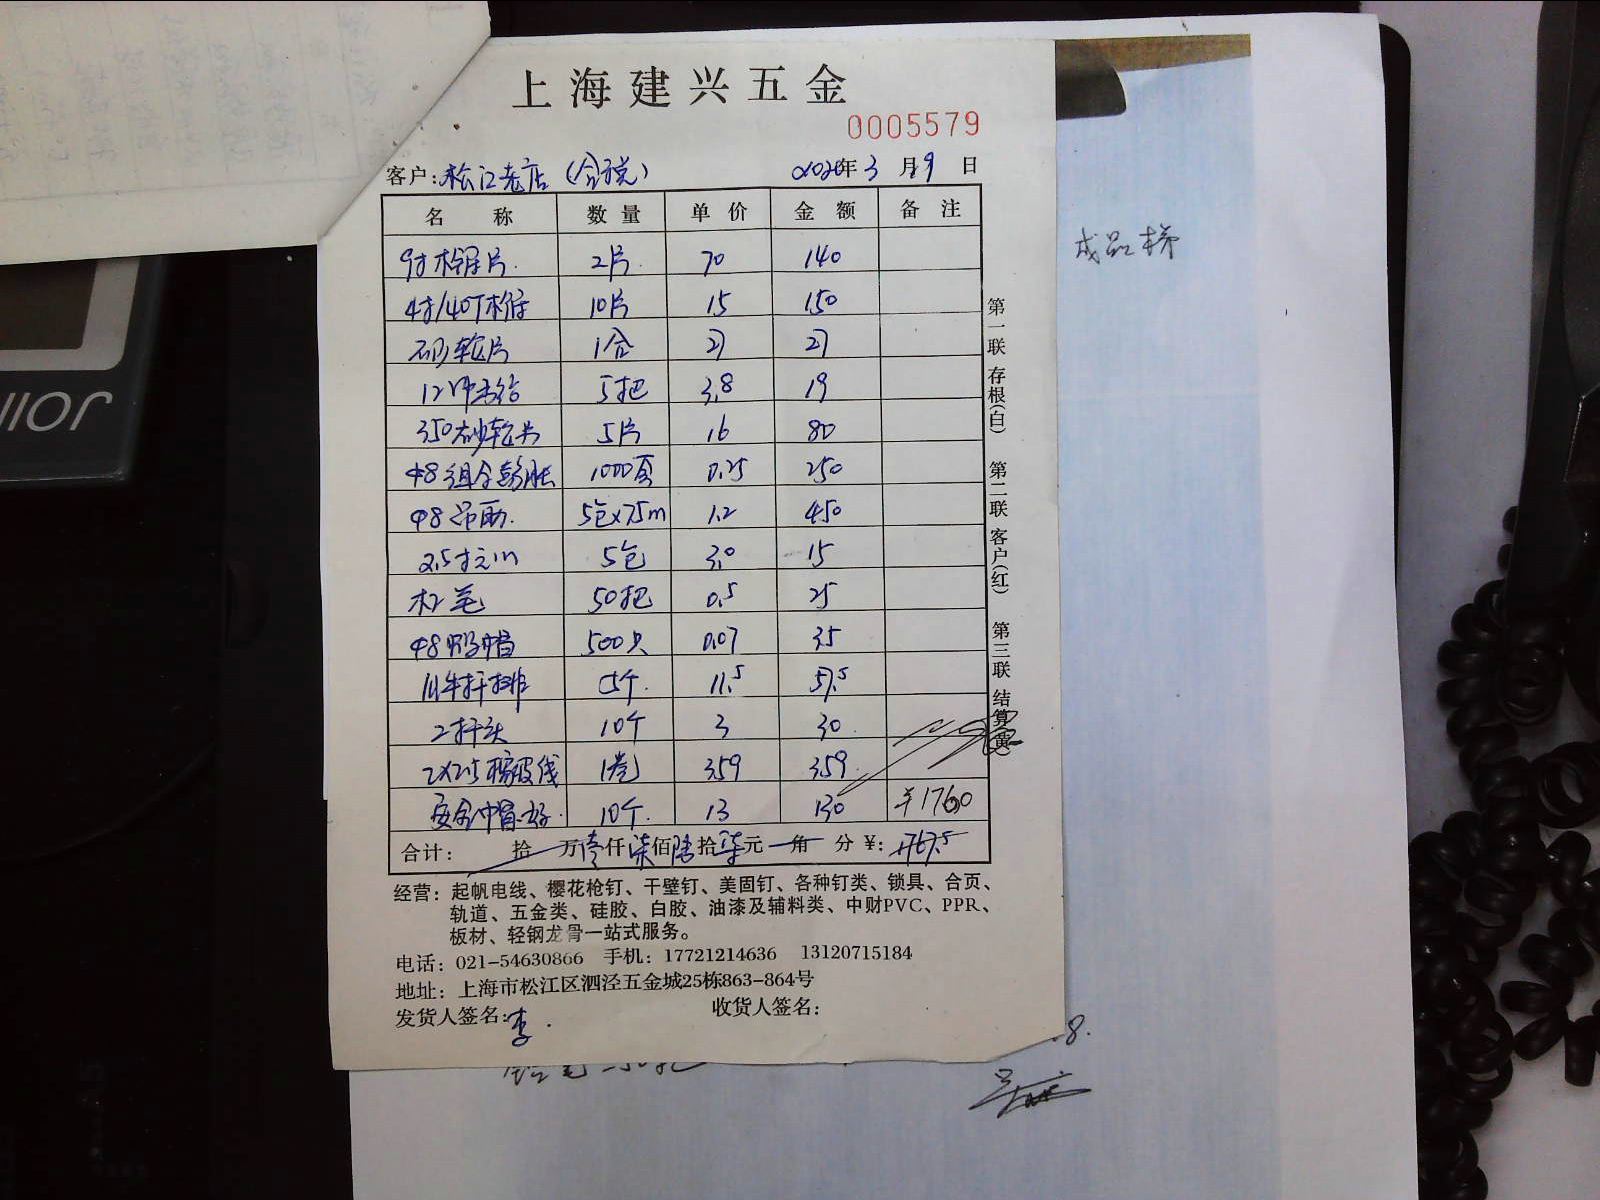 上海建兴五金
0005579
客户:松江老店（含税） 2020年3月9日
名称 数量 单价 金额 备注
9寸木锯片 2片 70 140
4寸/40T木锯 10片 15 150
砂轮片 1合 27 27
12冲击钻 5把 3.8 19
350砂轮片 5片 16 80
Φ8组合膨胀 1000套 0.25 250
Φ8吊筋 5包×75m 1.2 450
5包 3.0 15
50把 0.5 25
Φ8 帽 500只 0.07 35
5个 11.5 57.5
10个 3 30
2×2.5橡皮线 1卷 359 359
安全帽 10个 13 130 ¥1760
合计: 拾 万壹仟柒佰陆拾柒元 角 分 ¥: 1767.5
第一联 存根(白) 第二联 客户(红) 第三联 结算(黄)
经营: 起帆电线、樱花枪钉、干壁钉、美固钉、各种钉类、锁具、合页、
轨道、五金类、硅胶、白胶、油漆及辅料类、中财PVC、PPR、
板材、轻钢龙骨一站式服务。
电话: 021-54630866 手机: 17721214636 13120715184
地址: 上海市松江区泗泾五金城25栋863-864号
发货人签名: 李. 收货人签名:
成品梯